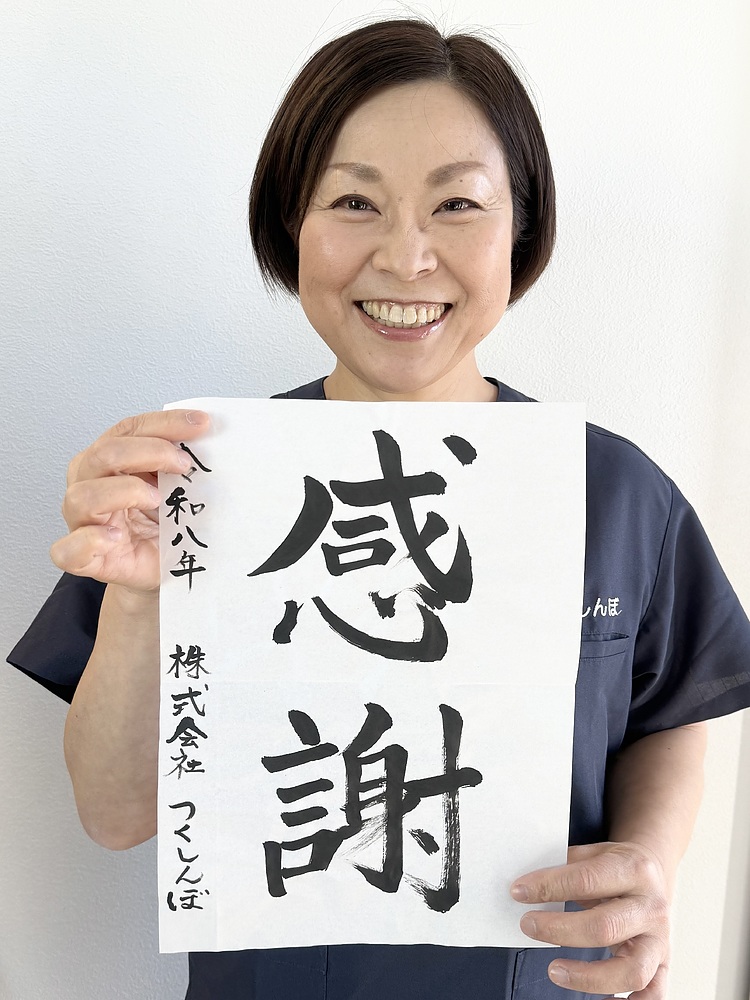 感謝
令和八年 株式会社 つくしんぼ
しんぼ